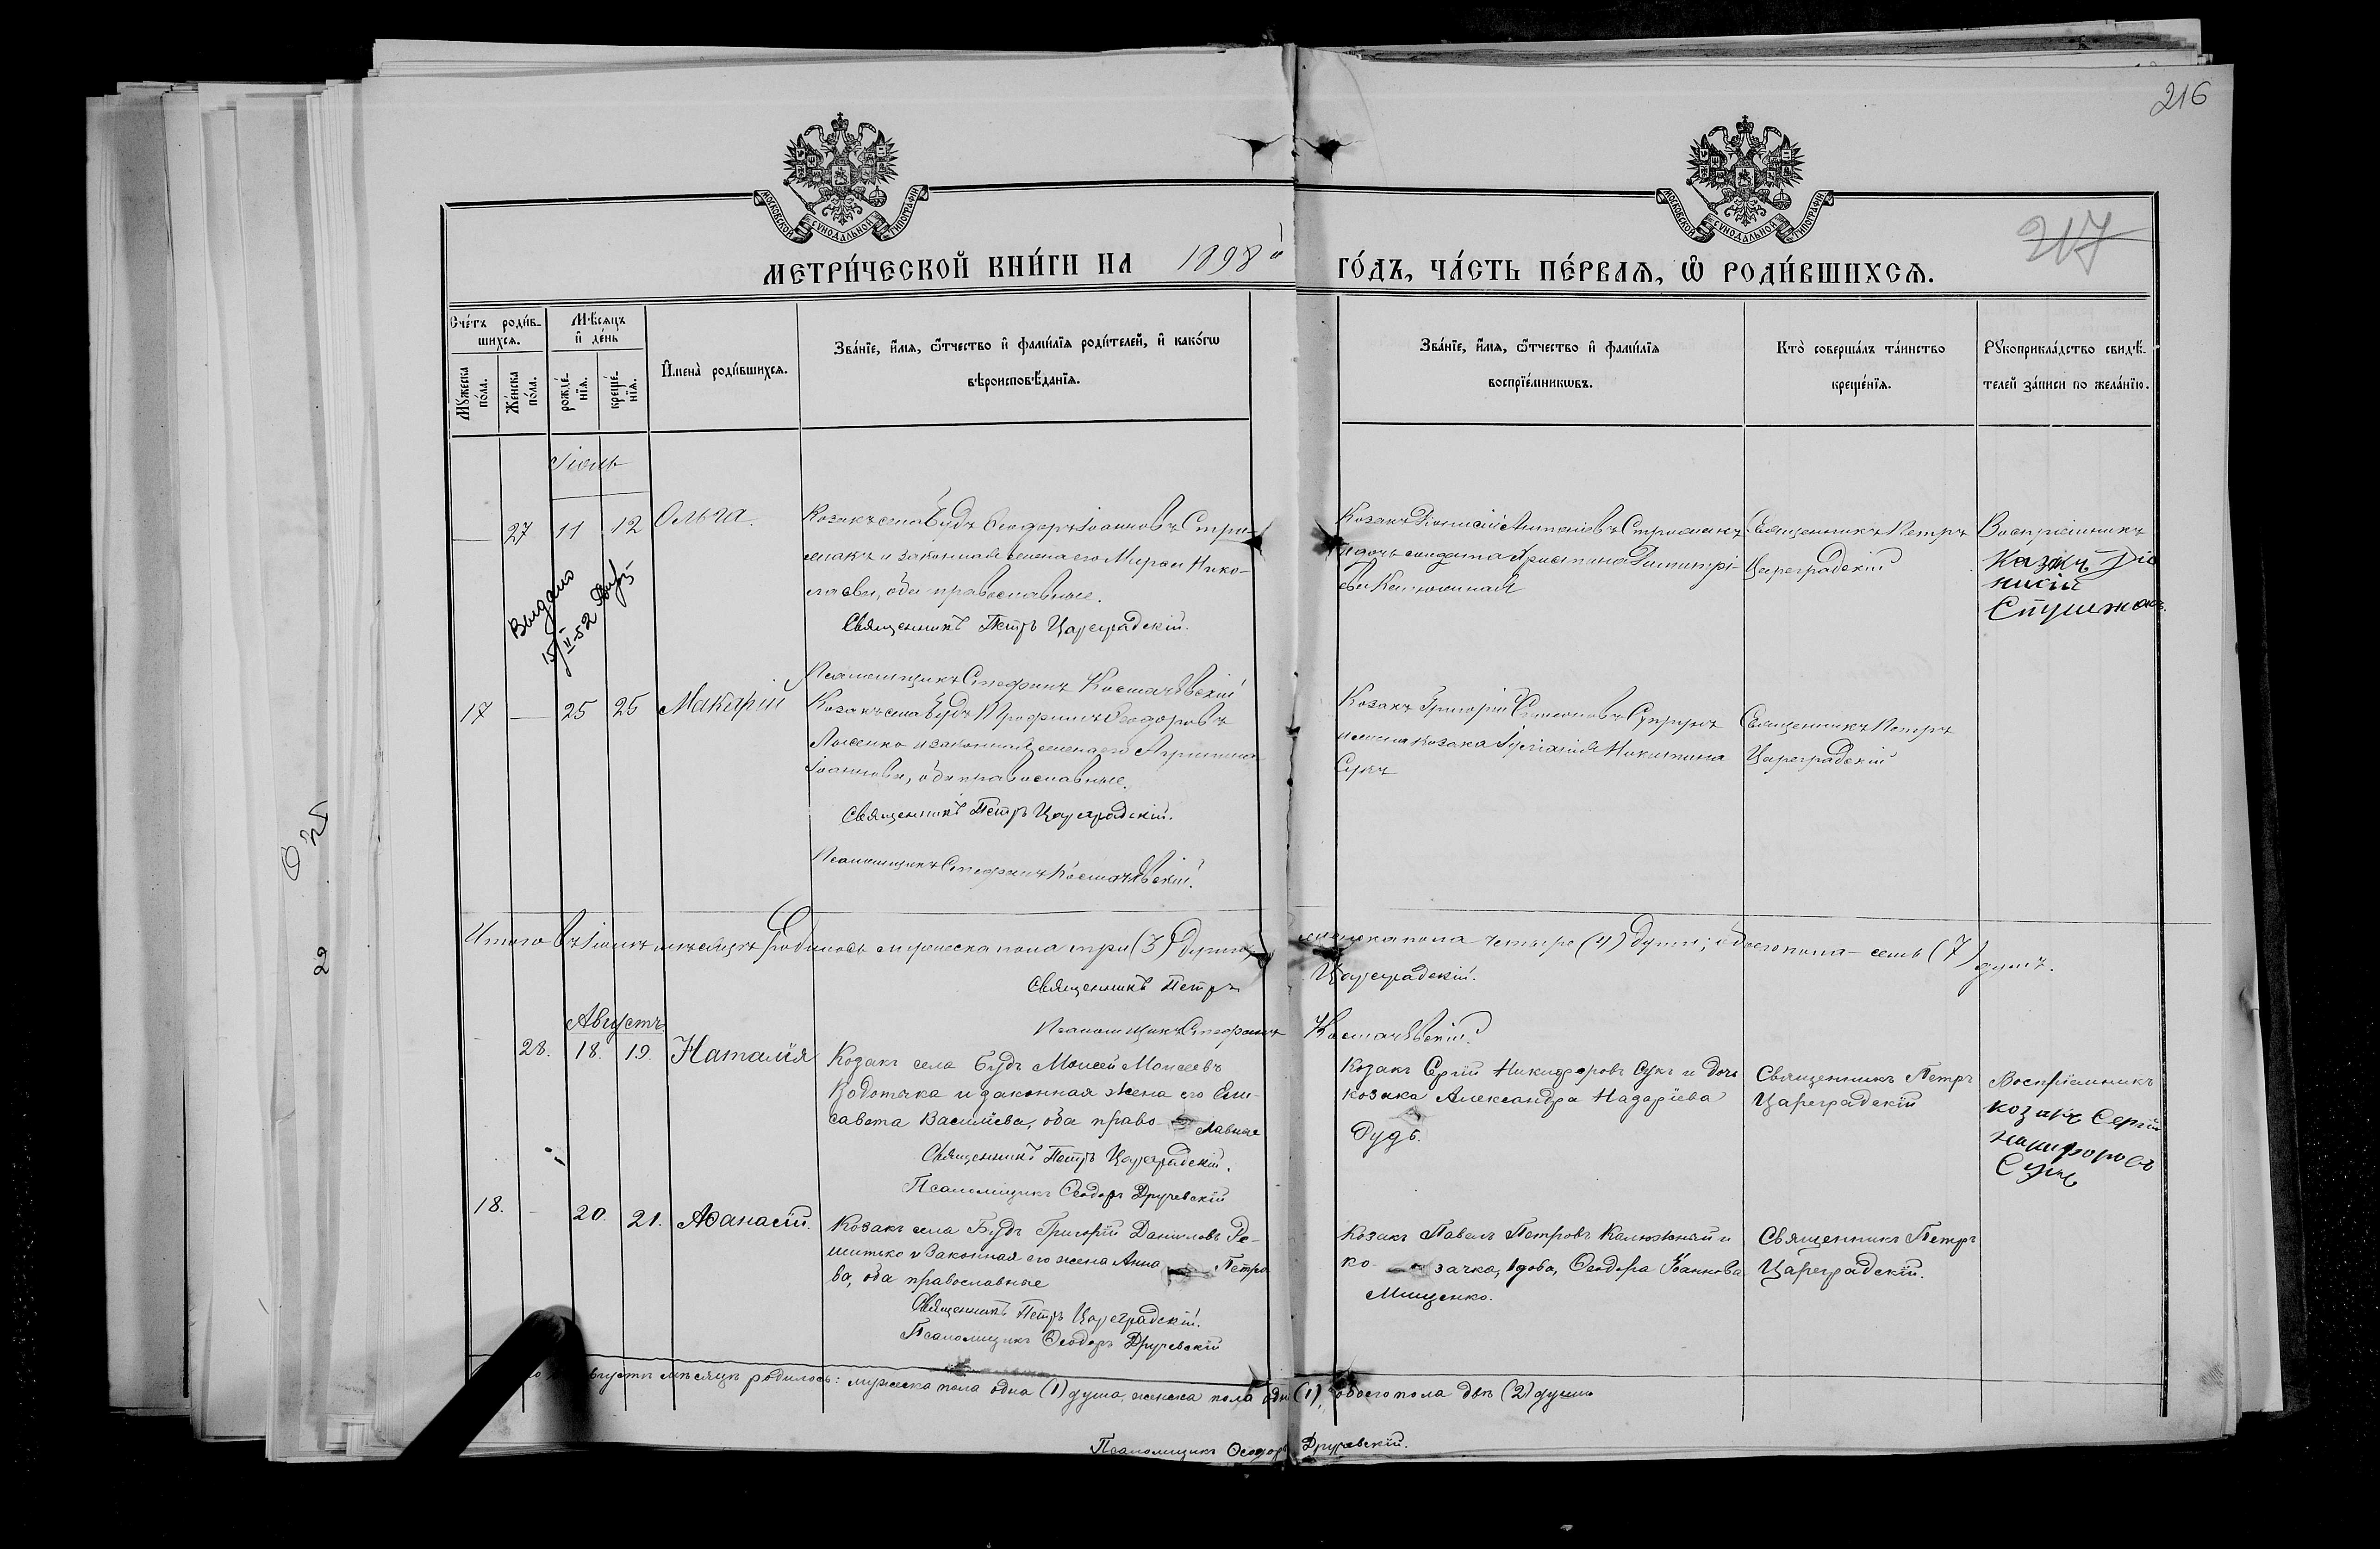 216
217
МОСКОВСКОЙ СѴНОДАЛЬНОЙ ТИПОГРАФІИ
МОСКОВСКОЙ СѴНОДАЛЬНОЙ ТИПОГРАФІИ
МЕТРИ́ЧЕСКОЙ КНИ́ГИ НА 1898
ГО́ДЪ, ЧА́СТЬ ПЕ́РВАѦ, Ѡ҆ РОДИ́ВШИХСѦ.
Сче́тъ роди́в-
шихсѧ.
Мꙋжеска по́ла.
Же́нска по́ла.
Мѣ́сѧцъ
и҆ де́нь
рожде́-
нїѧ.
креще́-
нїѧ.
И҆мена̀ роди́вшихсѧ.
Зва́нїе, и҆́мѧ, ѻ҆́тчество и҆ фами́лїѧ роди́телей, и҆ како́гѡ
вѣроисповѣ́данїѧ.
Зва́нїе, и҆́мѧ, ѻ҆́тчество и҆ фами́лїѧ
воспрїе́мникѡвъ.
Кто̀ соверша́лъ та́инство
креще́нїѧ.
Рꙋкоприкла́дство свидѣ́-
телей за́писи по жела́нїю.
Іюль
27 11 12 Ольга.
Козакъ села Будъ Ѳеодоръ Іоанновъ Стри-
жакъ и законная жена его Марѳа Нико-
лаева, оба православные.
Священникъ Петръ Цареградскій.
Псаломщикъ Стефанъ
Козакъ Діонисій Антоніевъ Стрижакъ
и дочь солдата Христина Димитрі-
ева
Священникъ Петръ
Цареградскій
Воспріемникъ
казакъ Діо
нисій
Выдано
15/II-52
17 — 25 25 Макарій
Козакъ села Будъ Трофимъ Ѳеодоровъ
и законная жена его Агрипина
Іоаннова, оба православные.
Священникъ Петръ Цареградскій.
Псаломщикъ Стефанъ
Козакъ Григорій Симеоновъ
и жена козака Іуліанія Никитина
Сукъ
Священникъ Петръ
Цареградскій
Итого въ Іюлѣ мѣсяцѣ родилось мужеска пола три (3) души, женска пола четыре (4) души; обоего пола – семь (7) душъ.
Священникъ Петръ Цареградскій.
Псаломщикъ Стефанъ
Августъ.
28. 18. 19. Наталія
Козакъ села Будъ Моисей Моисеевъ
и законная жена его Ели-
савета Василіева, оба право- славные
Священникъ Петръ Цареградскій.
Псаломщикъ Ѳеодоръ Дручевскій
Козакъ Сергій Никифоровъ Сукъ и дочь
козака Александра Назаріева
Дудъ.
Священникъ Петръ
Цареградскій
Воспріемникъ
козакъ Сергій
Никифоровъ
Сукъ
18. — 20. 21. Аѳанасій.
Козакъ села Будъ Григорій Даніиловъ Ре-
шитько и законная его жена Анна Петро
ва, оба православные
Священникъ Петръ Цареградскій.
Псаломщикъ Ѳеодоръ Дручевскій
Козакъ Павелъ Петровъ Калюжный и
ко- зачка, вдова, Ѳеодора Іоаннова
Мищенко.
Священникъ Петръ
Цареградскій.
Августѣ мѣсяцѣ родилось: мужеска пола одна (1) душа, женска пола одна (1), обоего пола двѣ (2) души
Псаломщикъ Ѳеодоръ Дручевскій.